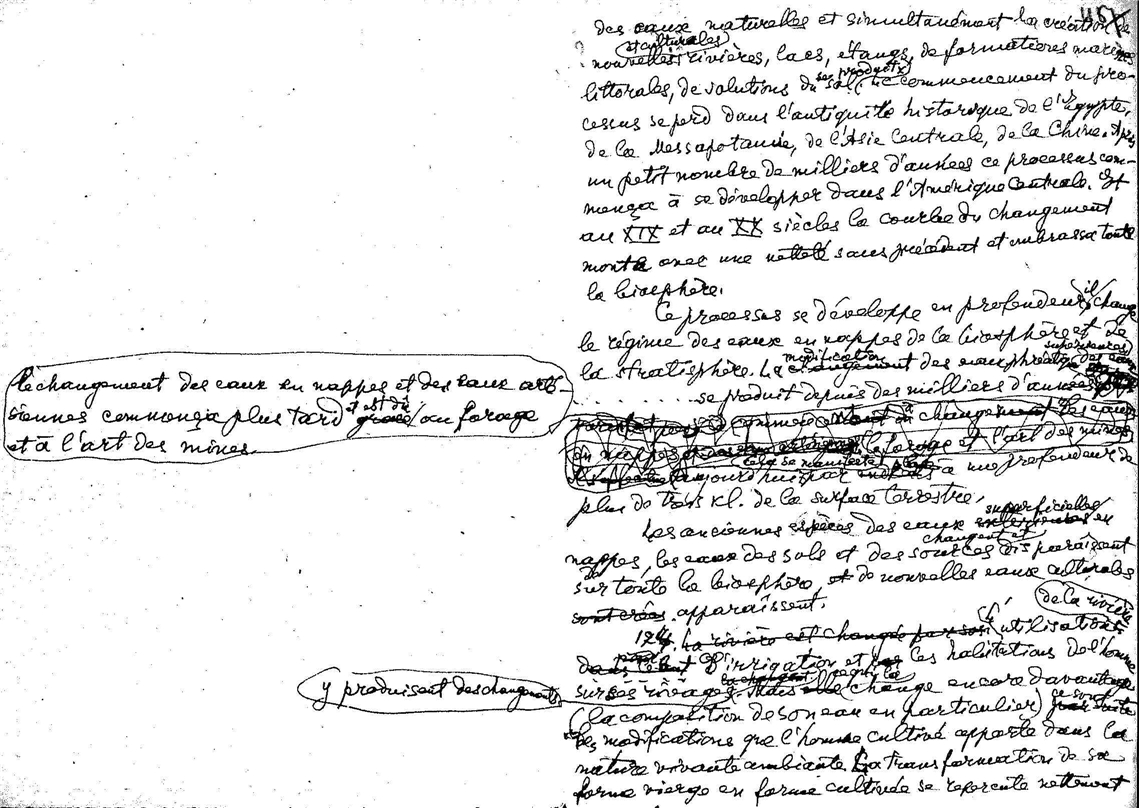 457
des eaux naturelles et simultanément la création de
et culturales
nouvelles rivières, lacs, étangs, de formations marines
littorales, de solutions du sol, ses produits. Le commencement du pro-
cessus se perd dans l'antiquité historique de l'Égypte,
de la Messapotamie, de l'Asie Centrale, de la Chine. Après
un petit nombre de milliers d'années ce processus com-
mença à se développer dans l'Amérique Centrale. Et
au XIX et au XX siècles la courbe du changement
monta avec une netteté sans précédent et embrassa toute
la biosphère.
Ce processus se développe en profondeur, il change
le régime des eaux en nappes de la biosphère et de
la stratisphère. La modification des eaux phréatiques superieures
se produit depuis des milliers d'années
le changement des eaux en nappes et des eaux arté-
siennes commença plus tard et est dû au forage
et à l'art des mines.
changement les eaux
en nappes le forage et l'art des mines
cela se manifeste
aujourd'hui par à une profondeur de
plus de trois kl. de la surface terrestre.
Les anciennes espèces des eaux superficielles en
nappes, les eaux des sols et des sources changent et disparaissent
sur toute la biosphère, et de nouvelles eaux culturales
sont crées apparaîssent.
174. La rivière est changée par son L'utilisation de la rivière
pour l'irrigation et les habitations de l'homme
sur ses rivages y produisent des changements. Mais elle change encore davantage
(la composition de son eau en particulier) ce sont
les modifications que l'homme cultivé apporte dans la
nature vivante ambiante. La transformation de sa
forme vierge en forme cultivée se repercute nettement